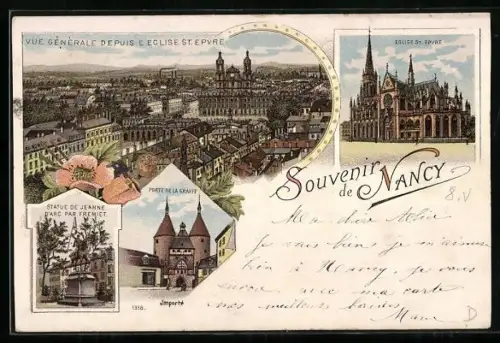 VUE GÉNÉRALE DEPUIS L'EGLISE ST. EPVRE
EGLISE ST. EPVRE
Souvenir
de NANCY
8.V
STATUE DE JEANNE
D'ARC PAR FREMIET.
PORTE DE LA CRAFFE
Importé
1918.
Ma chère
Je suis bien je m'amuse
bien à Nancy, je vous
envoie avec ma carte
mes meilleurs baisers
D